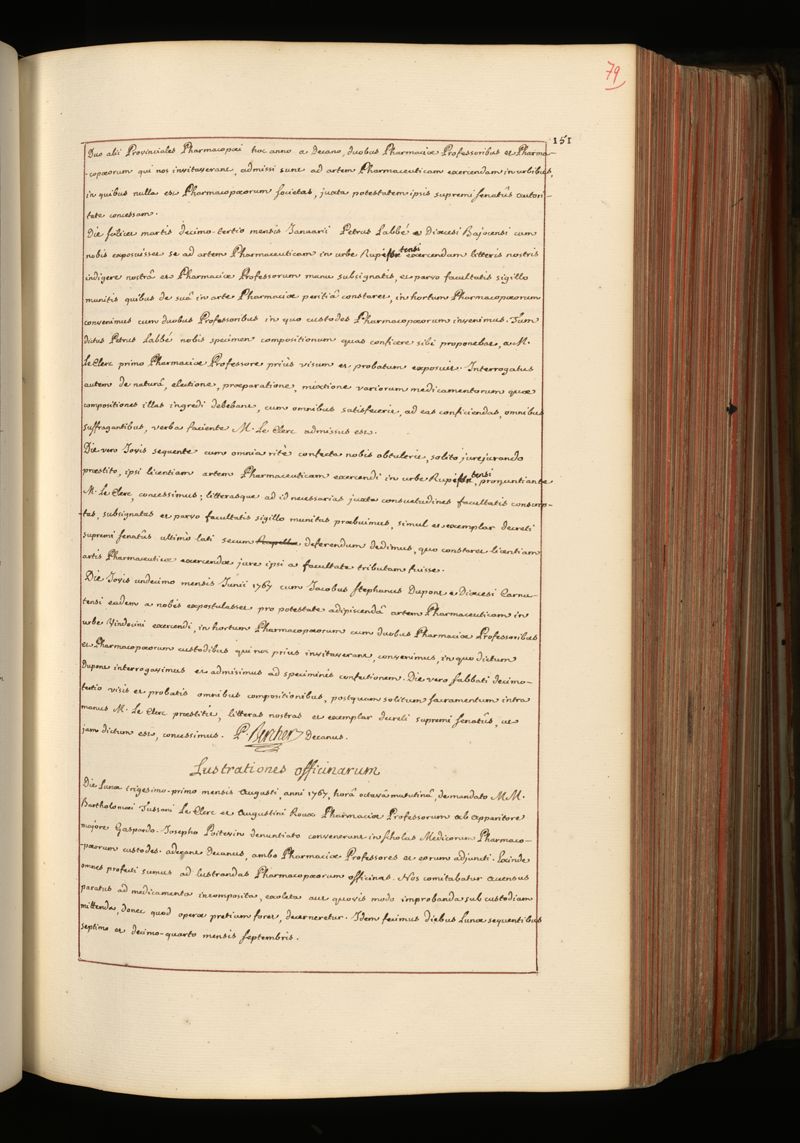 79
151
Duo alii Provinciales Pharmacopæi hoc anno a Decano, duobus Pharmaciæ Professoribus et Pharma-
-copæorum qui nos invitaverant, admissi sunt ad artem Pharmaceuticam exercendam in urbibus,
in quibus nulla est Pharmacopæorum societas, juxta potestatem ipsis supremi senatûs autori-
tate concessam.
Die scilicet martis decimo-tertio mensis Januarii Petrus Labbé e Diœcesi Bajocensi cum
nobis exposuisset se ad artem Pharmaceuticam in urbe Rupi tensi exercendam litteris nostris
indigere nostrâ et Pharmaciæ Professorum manu subsignatis, et parvo facultatis sigillo
munitis quibus de suâ in arte Pharmaciæ peritiâ constaret, in hortum Pharmacopæorum
convenimus cum duobus Professoribus in quo custodes Pharmacopæorum invenimus. Tum
dictus Petrus Labbé nobis specimen compositionum quas conficere sibi proponebat, a M.
Le Clerc primo Pharmaciæ Professore priùs visum et probatum exposuit. Interrogatus
autem de naturâ, electione, præparatione, mixtione variorum medicamentorum quæ
compositiones illas ingredi debebant, cum omnibus satisfecerit, ad eas conficiendas, omnibus
suffragantibus, verba faciente M. Le Clerc admissus est.
Die vero Jovis sequente cum omnia ritè confecta nobis obtulerit, solito jurejurando
præstito, ipsi licentiam artem Pharmaceuticam exercendi in urbe Rupi tensi, pronuntiante
M. Le Clerc, concessimus; litterasque ad id necessarias juxta consuetudines facultatis conscrip-
tas, subsignatas et parvo facultatis sigillo munitas præbuimus, simul et exemplar decreti
supremi senatûs ultimò lati secum deferendum dedimus, quo constaret licentiam
artis Pharmaceuticæ exercendæ jure ipsi a facultate tributam fuisse.
Die Jovis undecimo mensis Junii 1767 cum Jacobus Stephanus Dupont e Diœcesi Carnu-
tensi eadem a nobis expostulasset pro potestate adipiscendâ artem Pharmaceuticam in
urbe Vindocini exercendi, in hortum Pharmacopæorum cum duobus Pharmaciæ Professoribus
et Pharmacopæorum custodibus qui nos priùs invitaverant, convenimus, in quo dictum
Dupont interrogavimus et admisimus ad speciminis confectionem. Die vero sabbati decimo-
tertio visis et probatis omnibus compositionibus, postquam solitum sacramentum intra
manus M. Le Clerc præstitit, litteras nostras et exemplar decreti supremi senatûs, ut
jam dictum est, concessimus. P. Bercher Decanus.
Lustrationes officinarum
Die Lunæ trigesimo-primo mensis Augusti, anni 1767, horâ octavâ matutinâ, de mandato MM.
Bartholomæi Tussani Le Clerc et Augustini Roux Pharmaciæ Professorum ab apparitore
majore Gaspardo-Josepho Poitevin denuntiato convenerunt in scholas Medicorum Pharmaco-
-pæorum custodes. aderant Decanus, ambo Pharmaciæ Professores et eorum adjuncti. Exinde
omnes profecti sumus ad lustrandas Pharmacopæorum officinas. Nos comitabatur accensus
paratus ad medicamenta incomposita, exoleta aut quovis modo improbanda sub custodiam
mittenda, donec quod operæ pretium foret, decerneretur. Idem fecimus diebus Lunæ sequentibus
septimo et decimo-quarto mensis septembris.